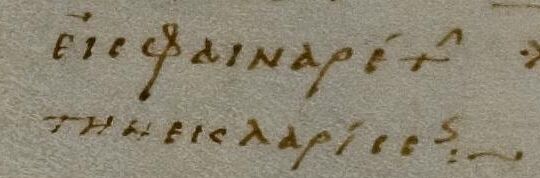 εἰς φαιναρέτ
την εις λαρίσσ